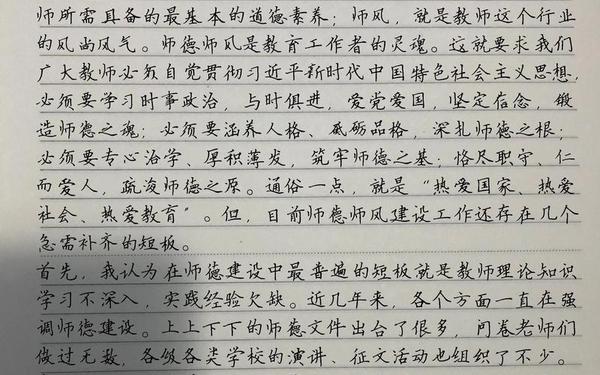 师所需具备的最基本的道德素养；师风，就是教师这个行业
的风尚风气。师德师风是教育工作者的灵魂。这就要求我们
广大教师必须自觉贯彻习近平新时代中国特色社会主义思想，
必须要学习时事政治，与时俱进，爱党爱国，坚定信念，锻
造师德之魂；必须要涵养人格、砥砺品格，深扎师德之根；
必须要专心治学、厚积薄发，筑牢师德之基；恪尽职守、仁
而爱人，疏浚师德之源。通俗一点，就是“热爱国家、热爱
社会、热爱教育”。但，目前师德师风建设工作还存在几个
急需补齐的短板。
首先，我认为在师德建设中最普遍的短板就是教师理论知识
学习不深入，实践经验欠缺。近几年来，各个方面一直在强
调师德建设。上上下下的师德文件出台了很多，问卷老师们
做过无数，各级各类学校的演讲、征文活动也组织了不少。